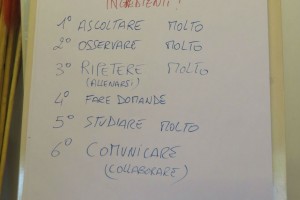 INGREDIENTI!
1° ASCOLTARE MOLTO
2° OSSERVARE MOLTO
3° RIPETERE MOLTO
(ALLENARSI)
4° FARE DOMANDE
5° STUDIARE MOLTO
6° COMUNICARE
(COLLABORARE)